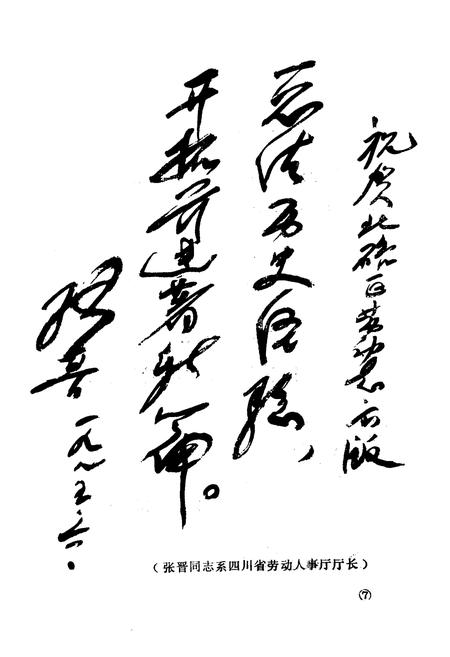 祝贺北碚区劳动志出版
总结历史经验、
开拓前进著新篇。
张晋
一九八五.六.
（张晋同志系四川省劳动人事厅厅长）
⑦